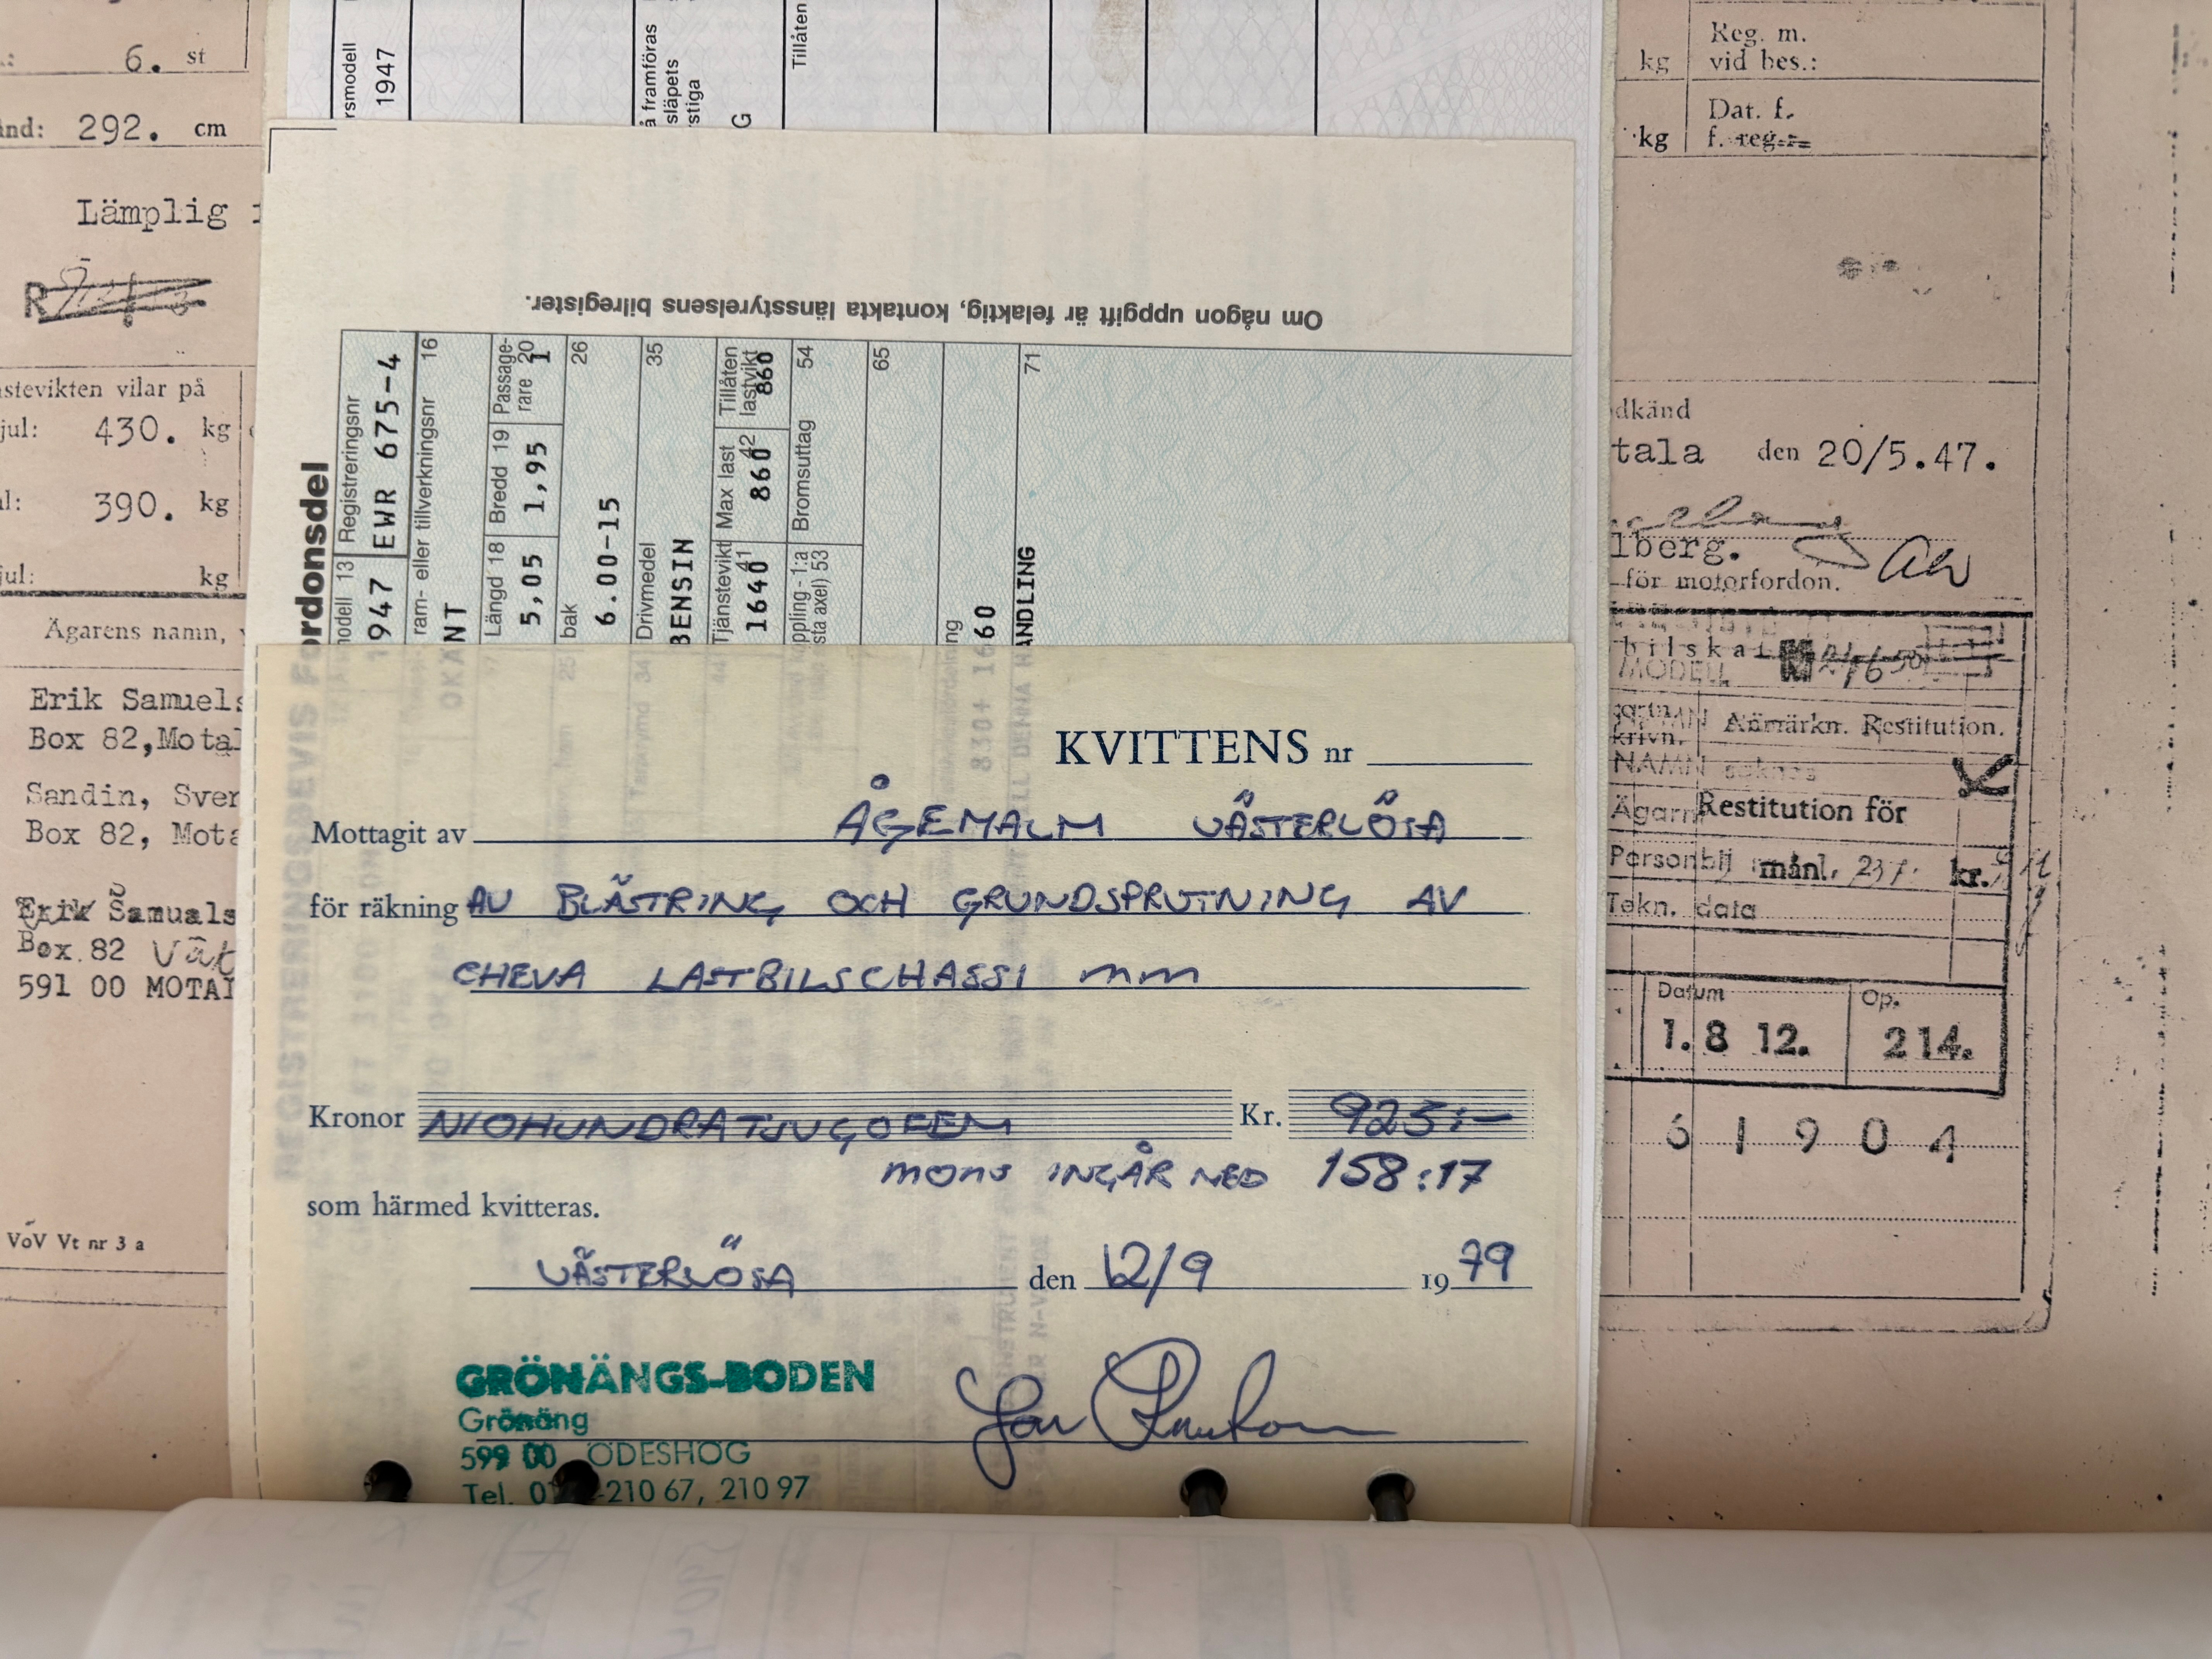 6. st
292. cm
Lämplig
R
stevikten vilar på
jul: 430. kg
390. kg
jul: kg
Ägarens namn,
Erik Samuels
Box 82, Motal
Sandin, Sver
Box 82, Mota
Erik Samuals
Box 82 Vät
591 00 MOTAL
VoV Vt nr 3 a
rsmodell
1947
å framföras
släpets
stiga
G
Tillåten
Om någon uppgift är felaktig, kontakta länsstyrelsens bilregister.
REGISTRERINGSBEVIS Fordonsdel
modell 13 Registreringsnr
1947 EWR 675-4
ram- eller tillverkningsnr 16
OKÄNT
Längd 18 Bredd 19 Passagerare 20
5,05 1,95 1
bak 26
6.00-15
Drivmedel 35
BENSIN
Tjänstevikt 41 Max last 42 Tillåten lastvikt
1640 860 860
sta axel) 53 Bromsuttag 54
65
830+ 1660
TILL DENNA HANDLING 71
KVITTENS nr
Mottagit av ÅGEMALM VÄSTERLÖSA
för räkning AV BLÄSTRING OCH GRUNDSPRUTNING AV
CHEVA LASTBILSCHASSI mm
Kronor NIOHUNDRATJUGOFEM Kr. 925:-
MOMS INGÅR MED 158:17
som härmed kvitteras.
VÄSTERLÖSA den 12/9 1979
GRÖNÄNGS-BODEN
Grönäng
599 00 ÖDESHÖG
Tel. 01 -210 67, 210 97
kg Reg. m.
vid bes.:
kg Dat. f.
f. reg.:
dkänd
tala den 20/5.47.
lberg.
för motorfordon.
bilskat
MODELL
Anmärkn. Restitution.
NAMN saknas
Ägar Restitution för
Personbil månl. 237. kr.
Tekn. data
Datum Op.
1.8 12. 214.
6 1 9 0 4